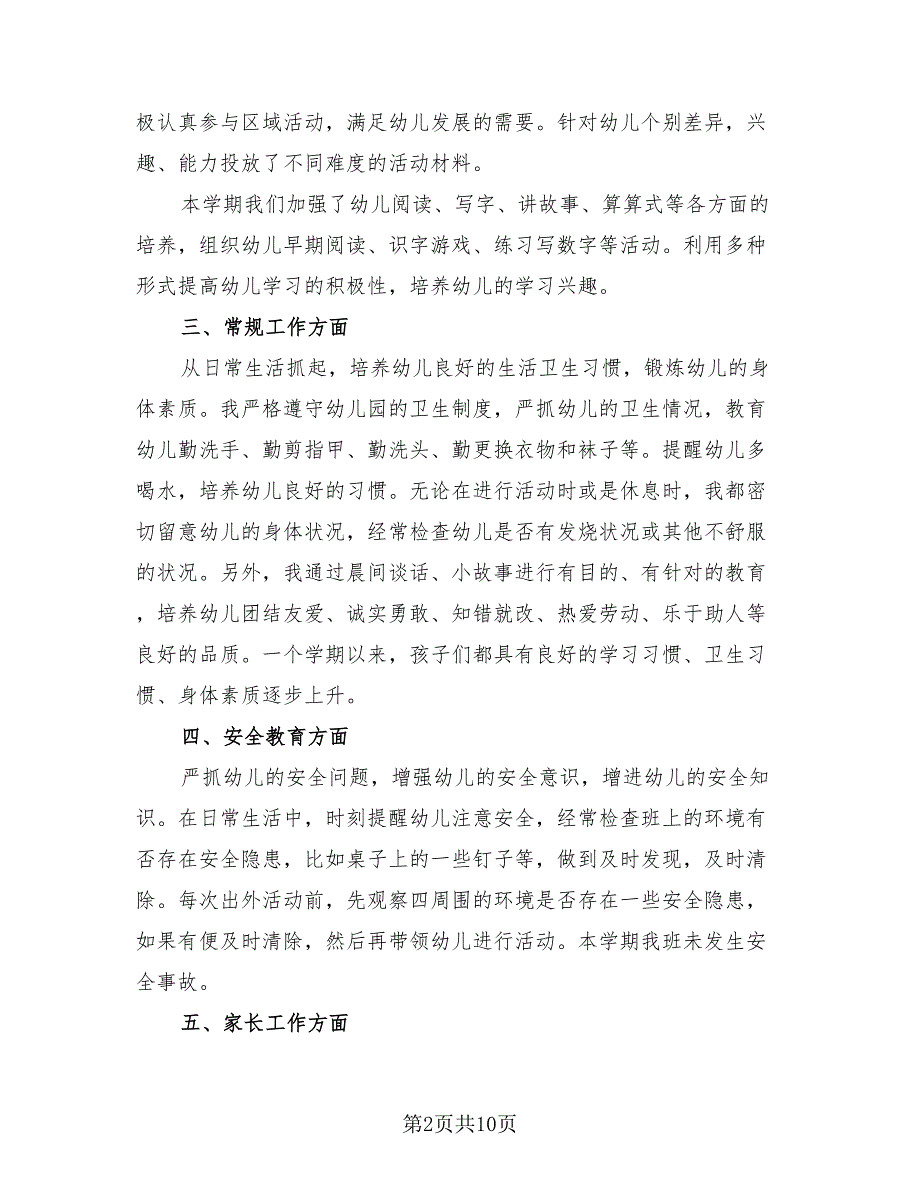 极认真参与区域活动，满足幼儿发展的需要。针对幼儿个别差异，兴
趣、能力投放了不同难度的活动材料。
本学期我们加强了幼儿阅读、写字、讲故事、算算式等各方面的
培养，组织幼儿早期阅读、识字游戏、练习写数字等活动。利用多种
形式提高幼儿学习的积极性，培养幼儿的学习兴趣。
三、常规工作方面
从日常生活抓起，培养幼儿良好的生活卫生习惯，锻炼幼儿的身
体素质。我严格遵守幼儿园的卫生制度，严抓幼儿的卫生情况，教育
幼儿勤洗手、勤剪指甲、勤洗头、勤更换衣物和袜子等。提醒幼儿多
喝水，培养幼儿良好的习惯。无论在进行活动时或是休息时，我都密
切留意幼儿的身体状况，经常检查幼儿是否有发烧状况或其他不舒服
的状况。另外，我通过晨间谈话、小故事进行有目的、有针对的教育
，培养幼儿团结友爱、诚实勇敢、知错就改、热爱劳动、乐于助人等
良好的品质。一个学期以来，孩子们都具有良好的学习习惯、卫生习
惯、身体素质逐步上升。
四、安全教育方面
严抓幼儿的安全问题，增强幼儿的安全意识，增进幼儿的安全知
识。在日常生活中，时刻提醒幼儿注意安全，经常检查班上的环境有
否存在安全隐患，比如桌子上的一些钉子等，做到及时发现，及时清
除。每次出外活动前，先观察四周围的环境是否存在一些安全隐患，
如果有便及时清除，然后再带领幼儿进行活动。本学期我班未发生安
全事故。
五、家长工作方面
第2页共10页